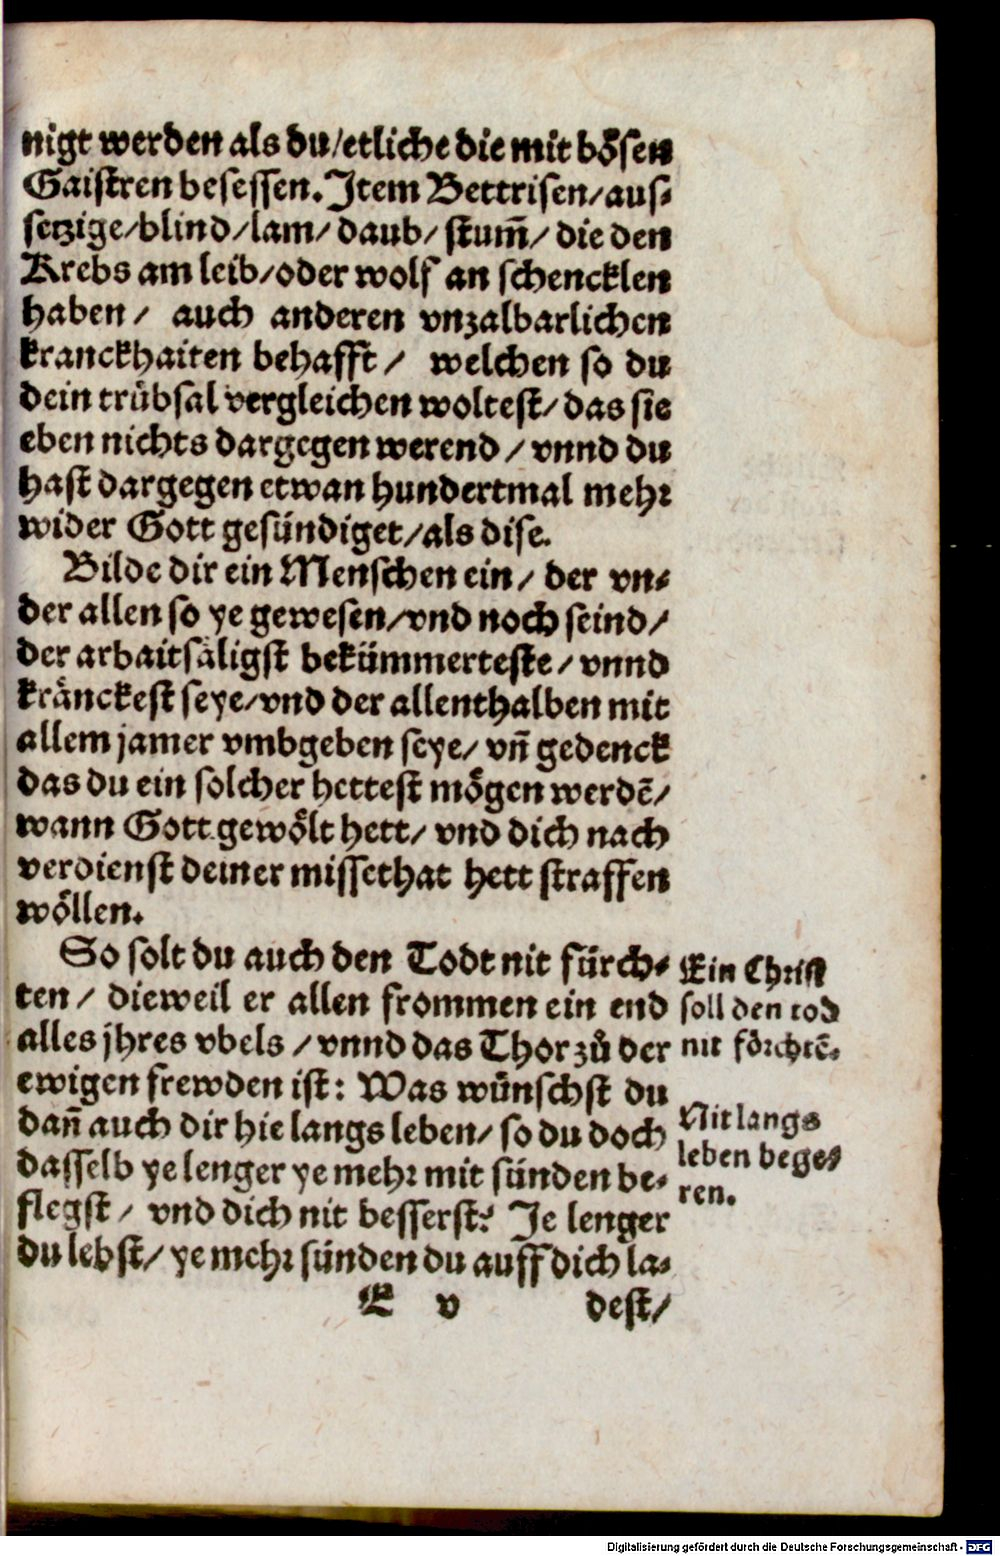 nigt werden als du/etliche die mit bösen
Gaistren besessen. Item Bettrisen/aus-
setzige/blind/lam/daub/stum̃/die den
Krebs am leib/oder wolf an schencklen
haben/ auch anderen vnzalbarlichen
kranckhaiten behafft/ welchen so du
dein trübsal vergleichen woltest/das sie
eben nichts dargegen werend/vnnd du
hast dargegen etwan hundertmal mehr
wider Gott gesündiget/als dise.
Bilde dir ein Menschen ein/der vn-
der allen so ye gewesen/vnd noch seind/
der arbaitsäligst bekümmerteste/vnnd
kränckest seye/vnd der allenthalben mit
allem jamer vmbgeben seye/vñ gedenck
das du ein solcher hettest mögen werdẽ/
wann Gott gewölt hett/vnd dich nach
verdienst deiner missethat hett straffen
wöllen.
So solt du auch den Todt nit fürch-
ten/ dieweil er allen frommen ein end
alles jhres vbels/vnnd das Thor zů der
ewigen frewden ist: Was wünschst du
dañ auch dir hie langs leben/so du doch
dasselb ye lenger ye mehr mit sünden be-
flegst/ vnd dich nit besserst? Je lenger
du lebst/ye mehr sünden du auff dich la-
E v dest/
Ein Christ
soll den tod
nit förchtẽ.
Nit langs
leben bege-
ren.
Digitalisierung gefördert durch die Deutsche Forschungsgemeinschaft - DFG